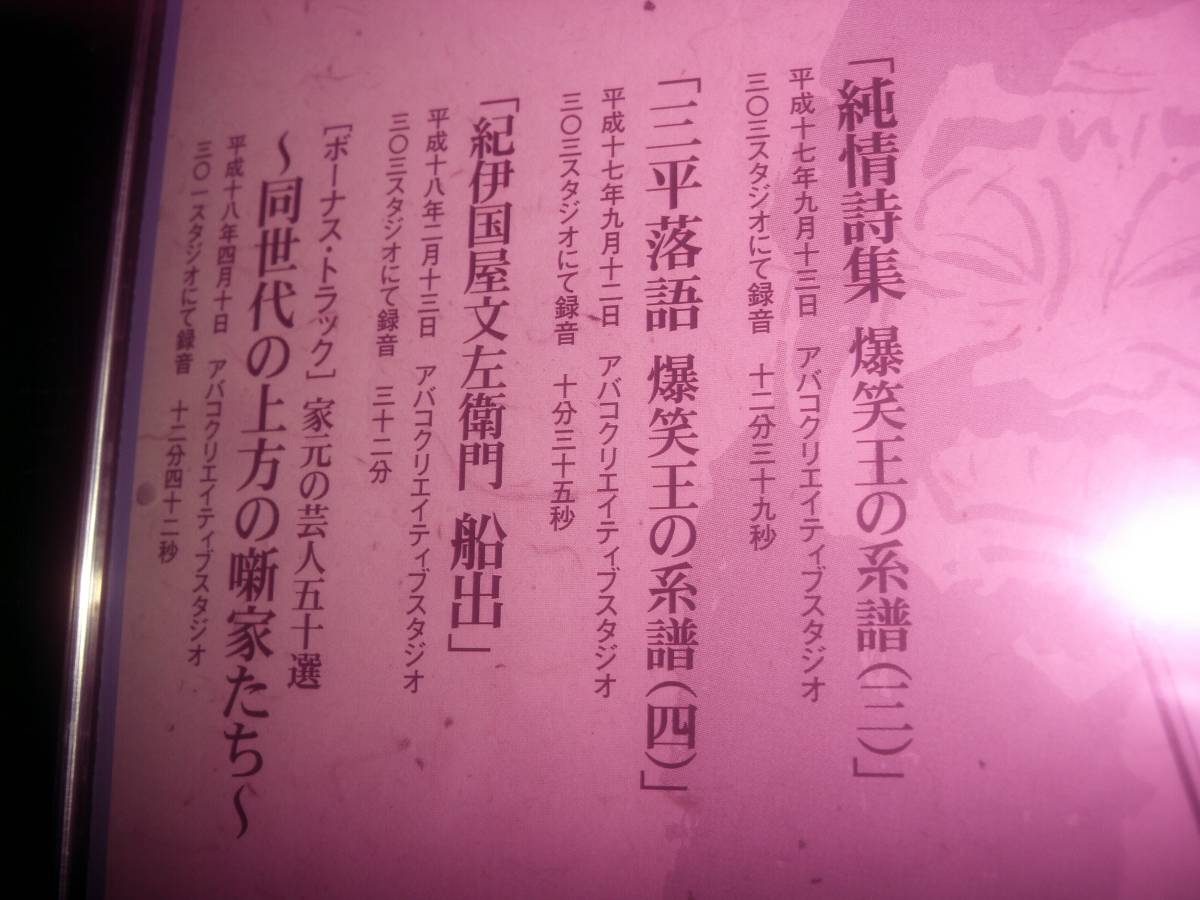 「純情詩集 爆笑王の系譜(三)」
平成十七年九月十三日 アバコクリエイティブスタジオ
三〇三スタジオにて録音 十二分三十九秒
「三平落語 爆笑王の系譜(四)」
平成十七年九月十二日 アバコクリエイティブスタジオ
三〇三スタジオにて録音 十分三十五秒
「紀伊国屋文左衛門 船出」
平成十八年二月十三日 アバコクリエイティブスタジオ
三〇三スタジオにて録音 三十二分
[ボーナス・トラック] 家元の芸人五十選
〜同世代の上方の噺家たち〜
平成十八年四月十日 アバコクリエイティブスタジオ
三〇一スタジオにて録音 十二分四十二秒